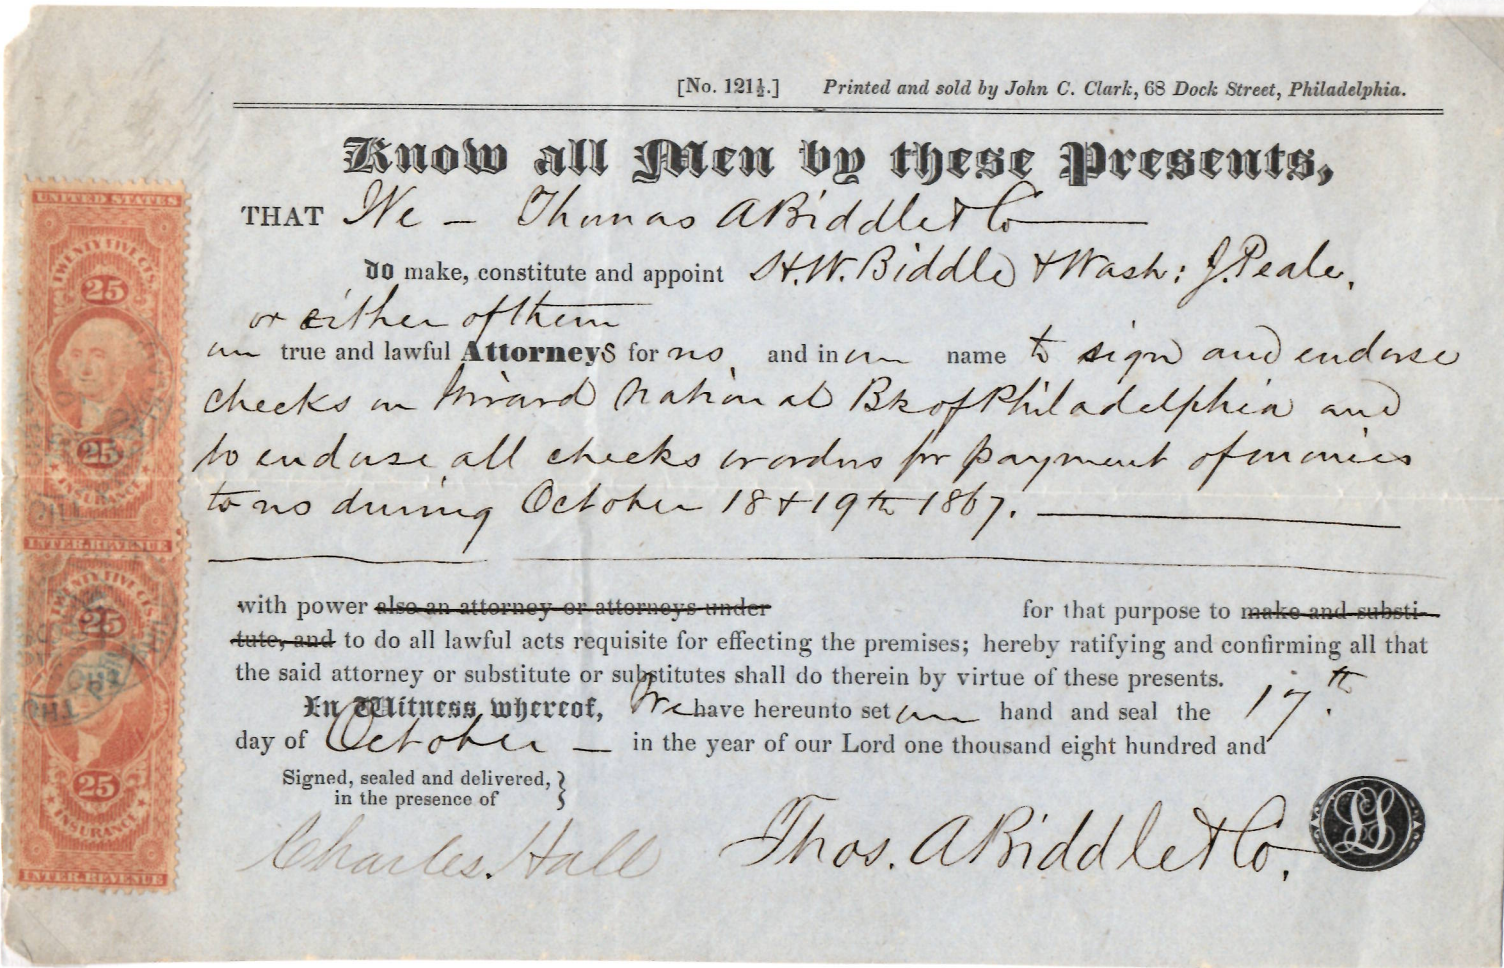 [No. 121½.] Printed and sold by John C. Clark, 68 Dock Street, Philadelphia.
Know all Men by these Presents,
THAT We — Thomas A Biddle & Co
do make, constitute and appoint H. W. Biddle & Wash: J. Peale,
or either of them
our true and lawful Attorneys for us and in our name to sign and endorse
checks on Girard National Bk of Philadelphia and
to endorse all checks or orders for payment of monies
to us during October 18 & 19th 1867.
with power also an attorney or attorneys under for that purpose to make and substi-
tute, and to do all lawful acts requisite for effecting the premises; hereby ratifying and confirming all that
the said attorney or substitute or substitutes shall do therein by virtue of these presents.
In Witness whereof, We have hereunto set our hand and seal the 17th.
day of October — in the year of our Lord one thousand eight hundred and
Signed, sealed and delivered,
in the presence of
Charles Hall
Thos. A Biddle & Co.
LS
UNITED STATES
TWENTY FIVE CTS.
25
25
INSURANCE
INTER. REVENUE
TWENTY FIVE CTS.
25
25
INSURANCE
INTER. REVENUE